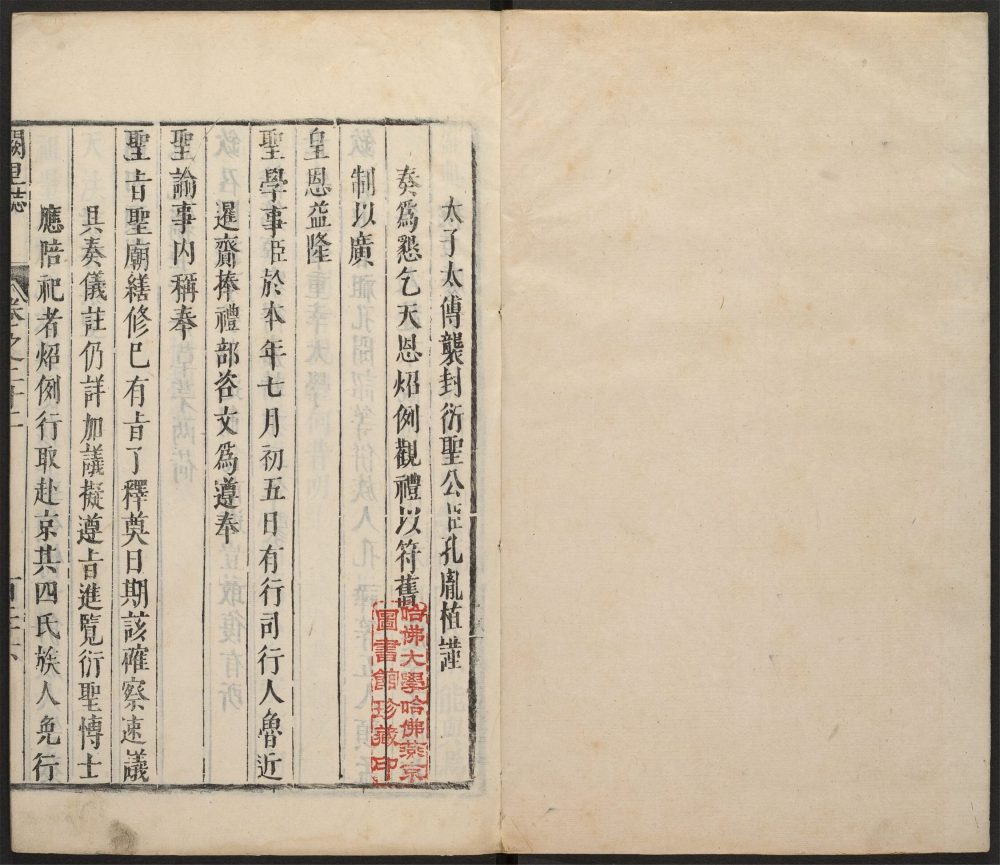 太子太傅襲封衍聖公臣孔胤植謹
奏爲懇乞天恩炤例觀禮以符舊
制以廣
皇恩益隆
聖學事臣於本年七月初五日有行司行人魯近
暹齎捧禮部咨文爲遵奉
聖諭事內稱奉
聖旨聖廟繕修巳有旨了釋奠日期該確察速議
具奏儀註仍詳加議擬遵旨進覽衍聖博士
應陪祀者炤例行取赴京其四氏族人免行
闕里誌
卷之
哈佛大學哈佛燕京
圖書館珍藏印